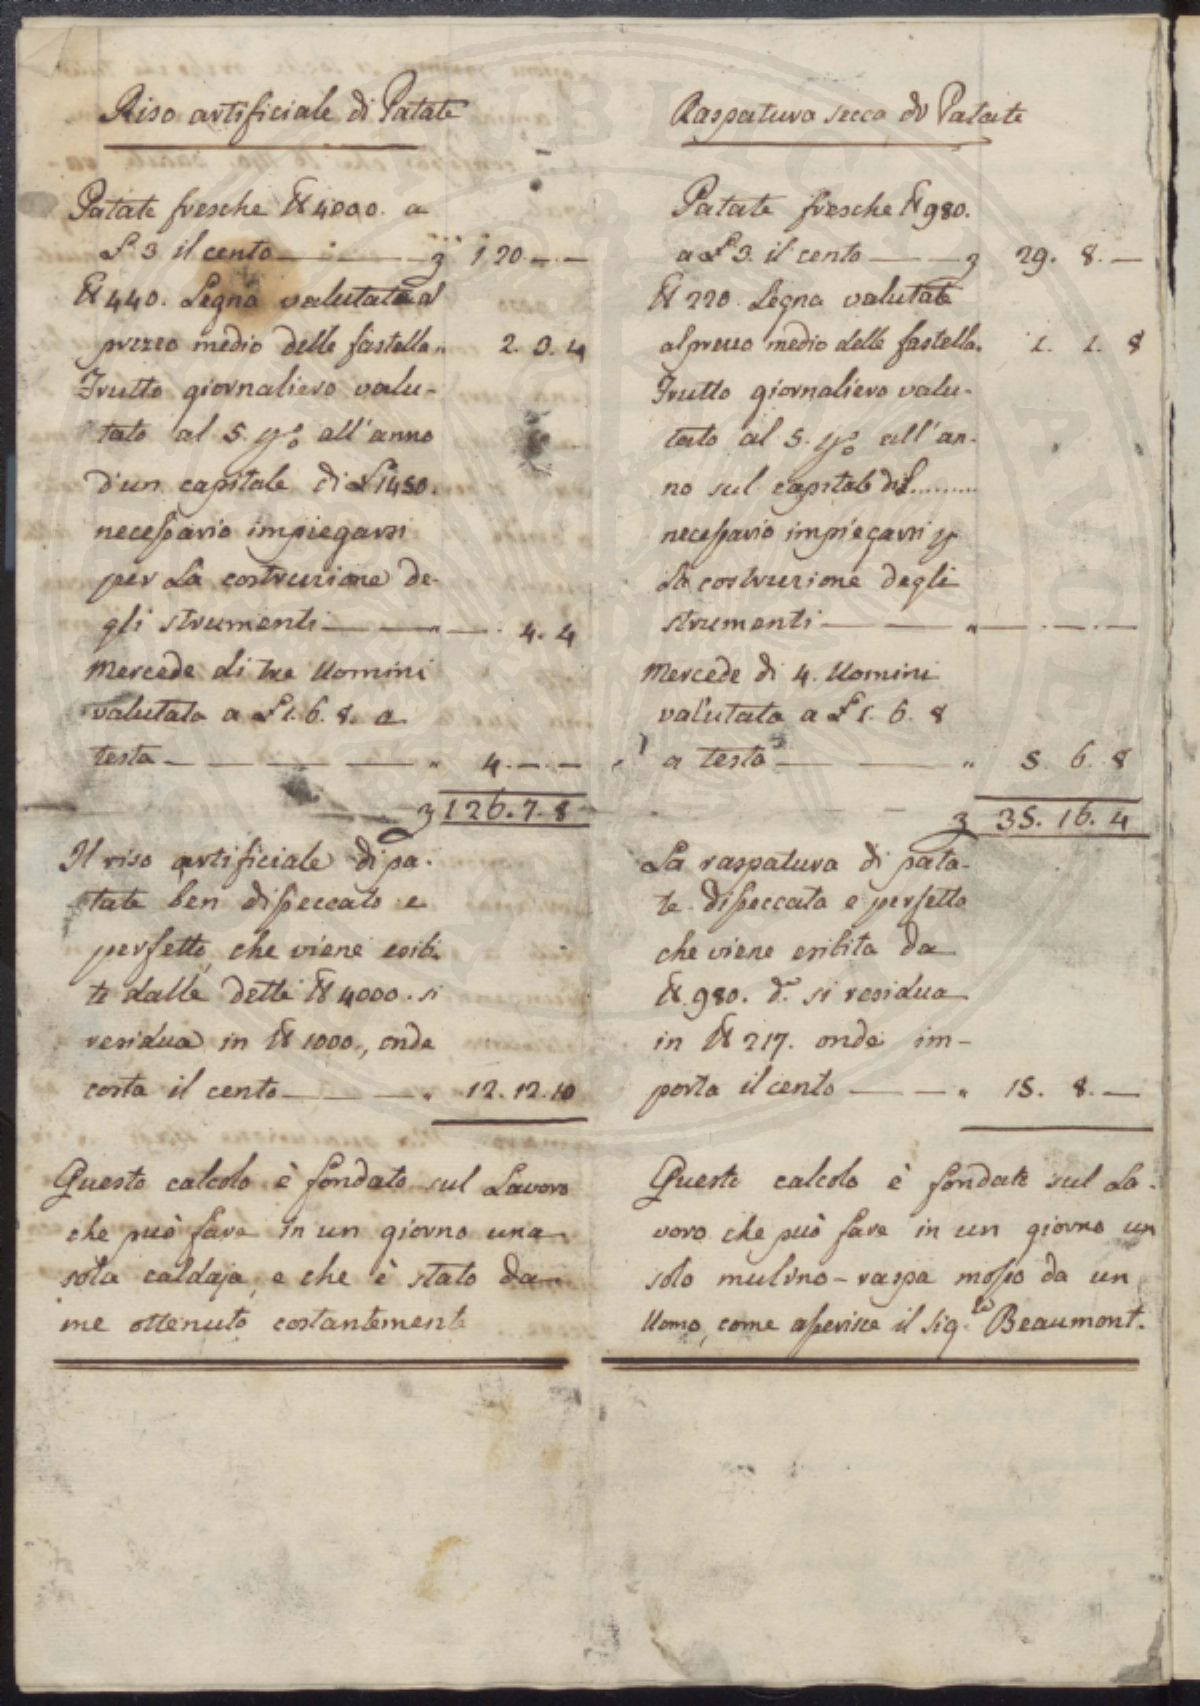 Riso artificiale di Patate
Patate fresche ℔ 4000. a
£ 3 il cento — — — 3 120.—.—
℔ 440. Legna valutata al
prezzo medio delle fastella „ 2. 3. 4
Frutto giornaliero valu-
tato al 5. p% all'anno
d'un capitale di £ 1450.
necessario impiegarsi
per la costruzione de-
gli strumenti — — „ —. 4. 4
Mercede di tre Uomini
valutata a £ 1. 6. 8. a
testa — — — — — „ 4.—.—
3 126. 7. 8
Il riso artificiale di pa-
tate ben disseccato e
perfetto, che viene esibi-
to dalle dette ℔ 4000. si
residua in ℔ 1000., onde
costa il cento — — — „ 12. 12. 10
Questo calcolo è fondato sul Lavoro
che può fare in un giorno una
sola caldaja, e che è stato da
me ottenuto costantemente
Raspatura secca di Patate
Patate fresche ℔ 980.
a £ 3. il cento — — 3 29. 8. —
℔ 220. Legna valutate
al prezzo medio delle fastella. 1. 1. 8
Frutto giornaliero valu-
tato al 5. p% all'an-
no sul capitale di £.........
necessario impiegarsi p
la costruzione degli
strumenti — — „ —.—.—
Mercede di 4. Uomini
valutata a £ 1. 6. 8
a testa — — „ 5. 6. 8
3 35. 16. 4
La raspatura di pata-
te disseccata e perfetta
che viene esibita da
℔ 980. d.e si residua
in ℔ 217. onde im-
porta il cento — — „ 15. 8. —
Questo calcolo è fondato sul La-
voro che può fare in un giorno un
solo mulino-raspa mosso da un
Uomo, come asserisce il Sig.re Beaumont.